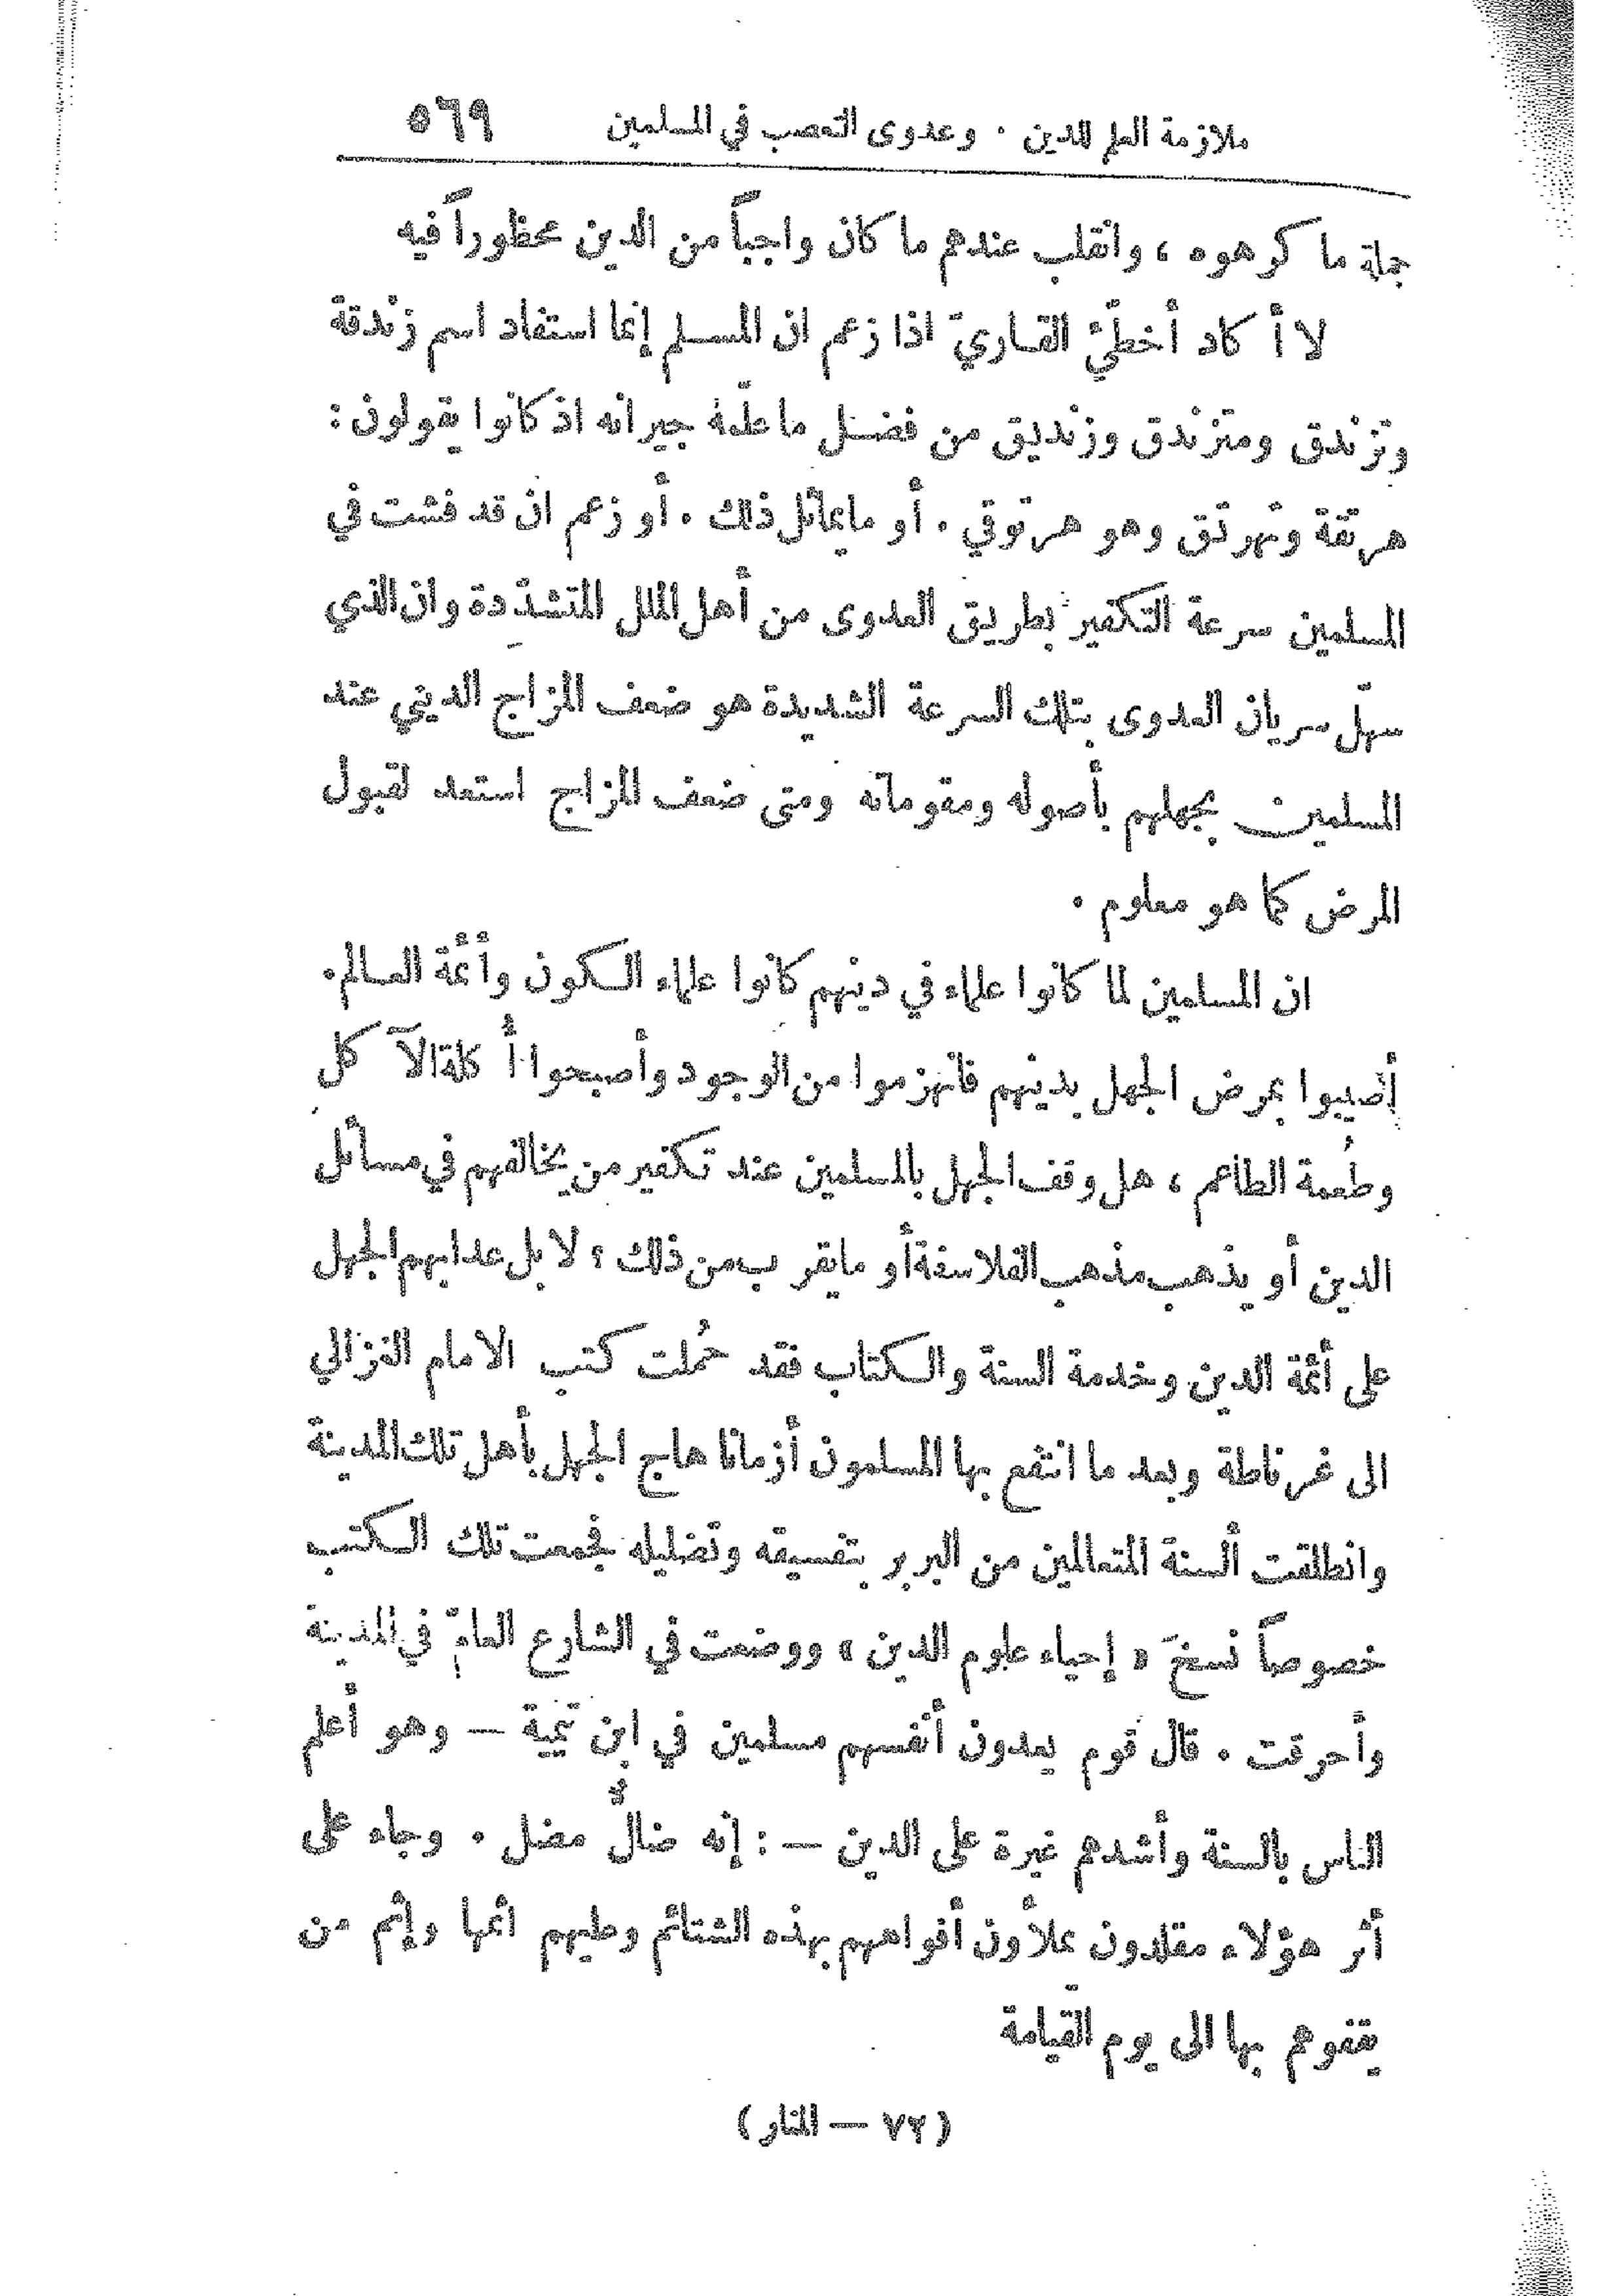 ملازمة العلم للدين . وعدوى التعصب في المسلمين ٥٦٩
جملة ما كرهوه ، وانقلب عندهم ما كان واجباً من الدين محظوراً فيه
لا أكاد أخطّئ القاريّ اذا زعم ان المسلم إنما استفاد اسم زندقة
وتزندق ومتزندق وزنديق من فضل ما علّمهُ جيرانه اذ كانوا يقولون :
هرتقة وتهرتق وهو هرتوقي . أو ما يماثل ذلك . أو زعم ان قد فشت في
المسلمين سرعة التكفير بطريق العدوى من أهل الملل المتشدّدة وان الذي
سهّل سريان العدوى بتلك السرعة الشديدة هو ضعف المزاج الديني عند
المسلمين بجهلهم بأصوله ومقوماته ومتى ضعف المزاج استعد لقبول
المرض كما هو معلوم .
ان المسلمين لما كانوا علماء في دينهم كانوا علماء الكون وأئمة العالم .
أصيبوا بمرض الجهل بدينهم فانهزموا من الوجود وأصبحوا أُكلة الآكل
وطُعمة الطاعم ، هل وقف الجهل بالمسلمين عند تكفير من يخالفهم في مسائل
الدين أو يذهب مذهب الفلاسفة أو ما يقرب من ذلك ؟ لا بل عدا بهم الجهل
على أئمة الدين وخدمة السنة والكتاب فقد حُملت كتب الامام الغزالي
الى غرناطة وبعد ما انتفع بها المسلمون أزمانا هاج الجهل بأهل تلك المدينة
وانطلقت ألسنة المتعالمين من البربر بتفسيقه وتضليله فجمعت تلك الكتب
خصوصاً نسخَ « إحياء علوم الدين » ووضعت في الشارع العامّ في المدينة
وأحرقت . قال قوم يعدون أنفسهم مسلمين في ابن تيمية — وهو أعلم
الناس بالسنة وأشدهم غيرة على الدين — : إنه ضالٌّ مضل . وجاء على
أثر هؤلاء مقلدون يملأون أفواههم بهذه الشتائم وعليهم اثمها وإثم من
يقفوهم بها الى يوم القيامة
(٧٢ — المنار)